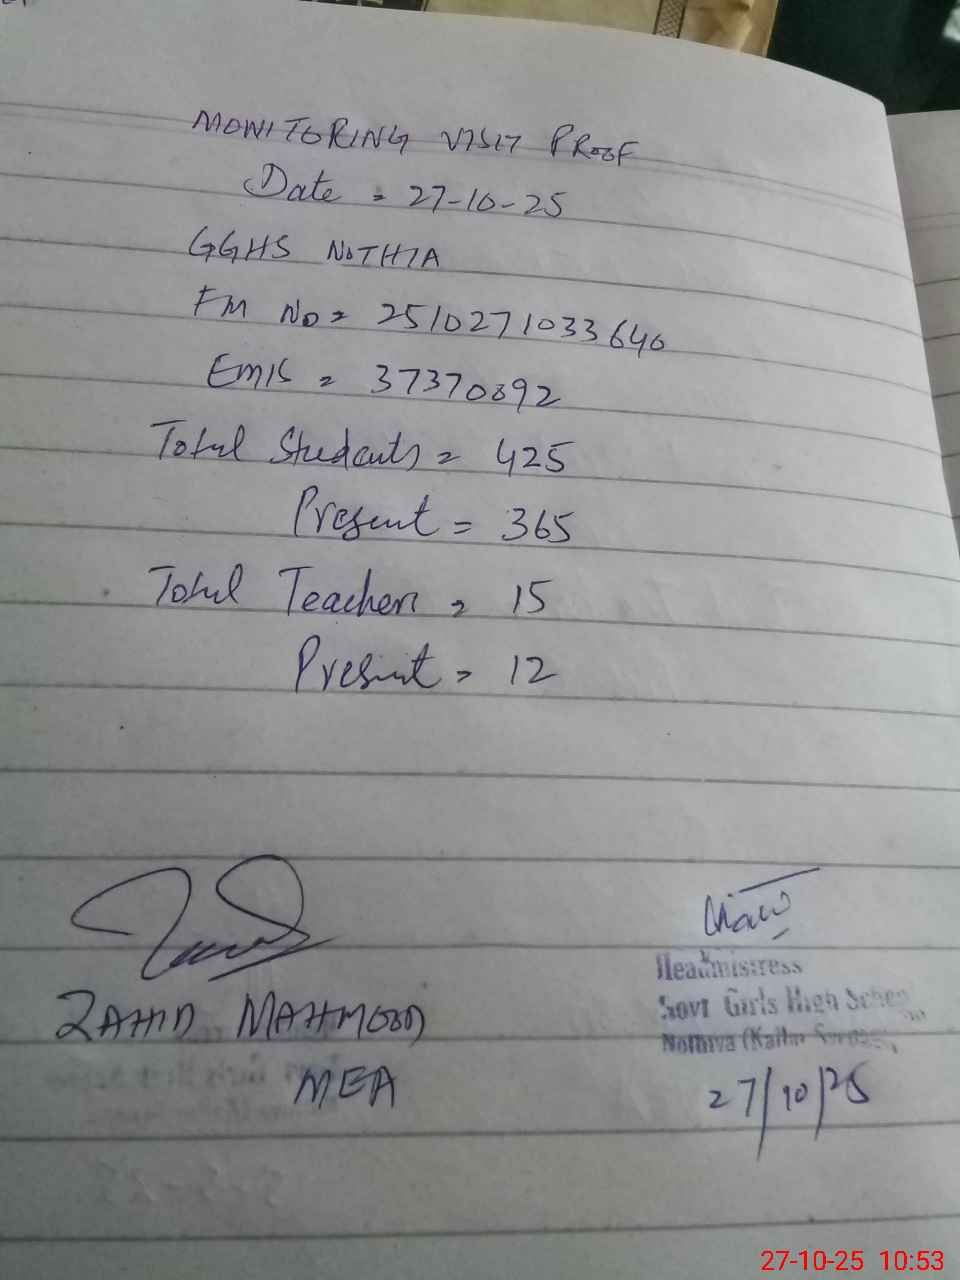 MONITORING VISIT PROOF
Date = 27-10-25
GGHS NOTHIA
FM No = 2510271033640
EMIS = 37370892
Total Students = 425
Present = 365
Total Teachers = 15
Present = 12
ZAHID MAHMOOD
MEA
Headmistress
Govt Girls High School
Nothiya (Kallar
27/10/25
27-10-25 10:53